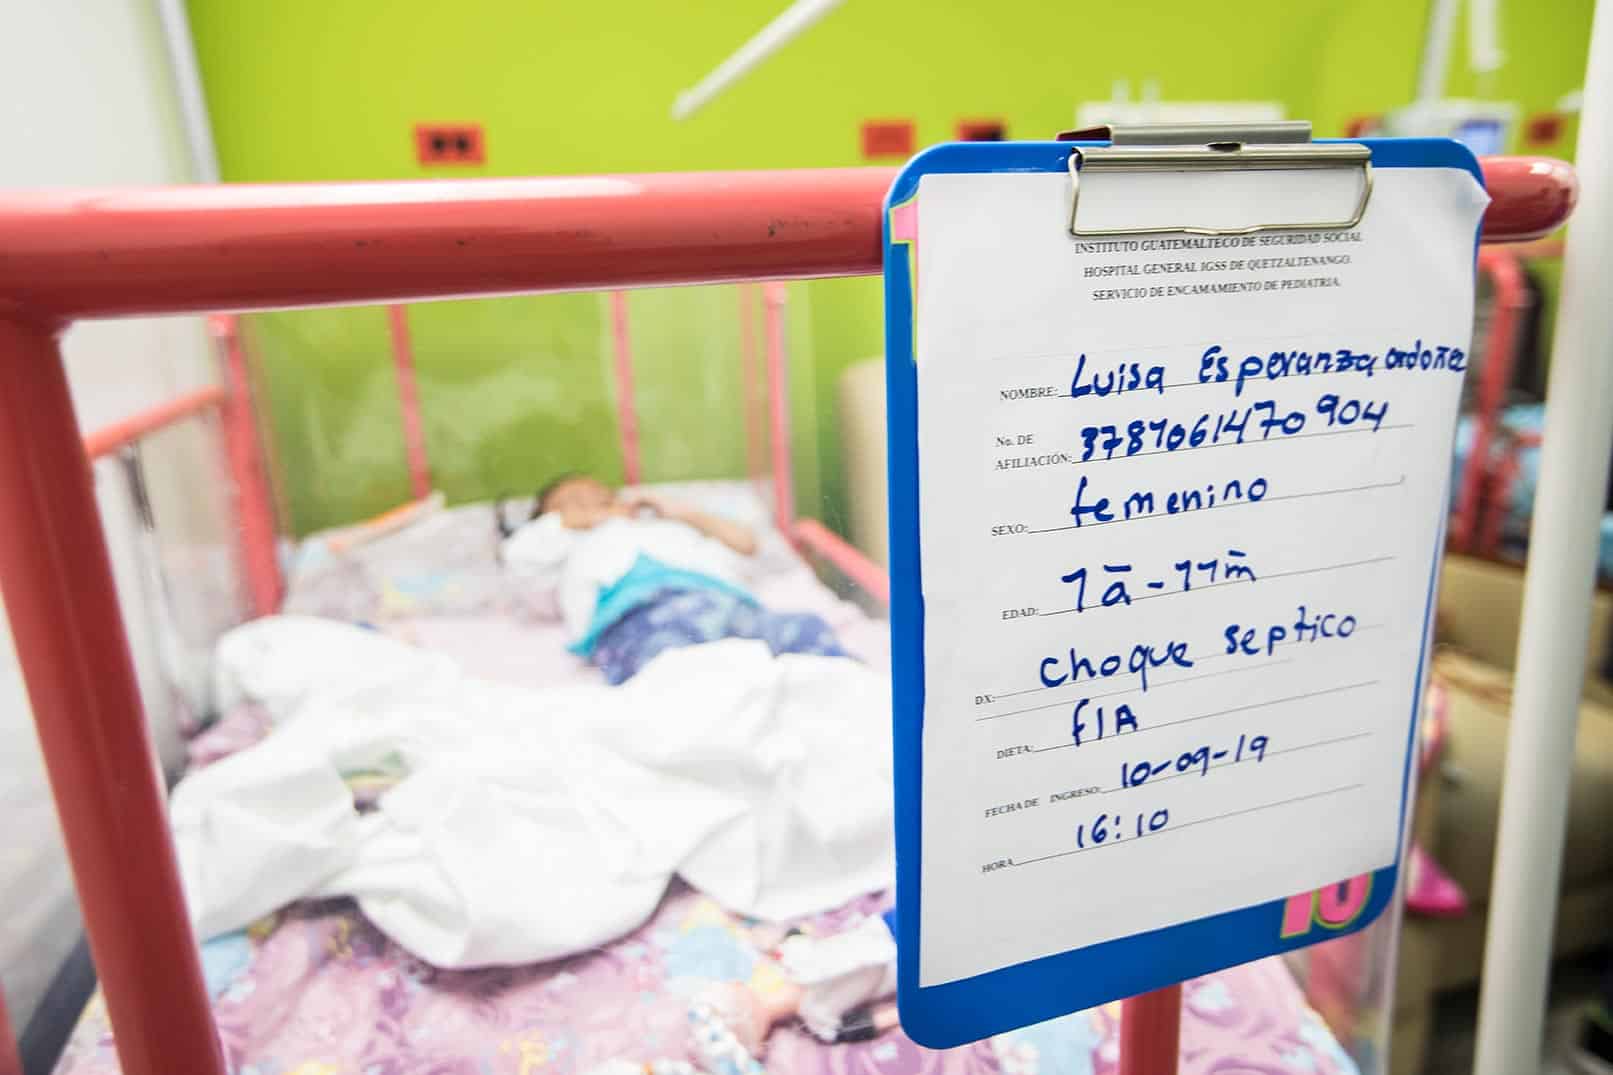 INSTITUTO GUATEMALTECO DE SEGURIDAD SOCIAL
HOSPITAL GENERAL IGSS DE QUETZALTENANGO.
SERVICIO DE ENCAMAMIENTO DE PEDIATRIA.
NOMBRE: Luisa Esperanza ordoñez
No. DE
AFILIACIÓN:
SEXO: femenino
EDAD: 1 ā - 11 m̄
DX: choque septico
DIETA: fIA
FECHA DE INGRESO: 10-09-19
HORA 16:10
10